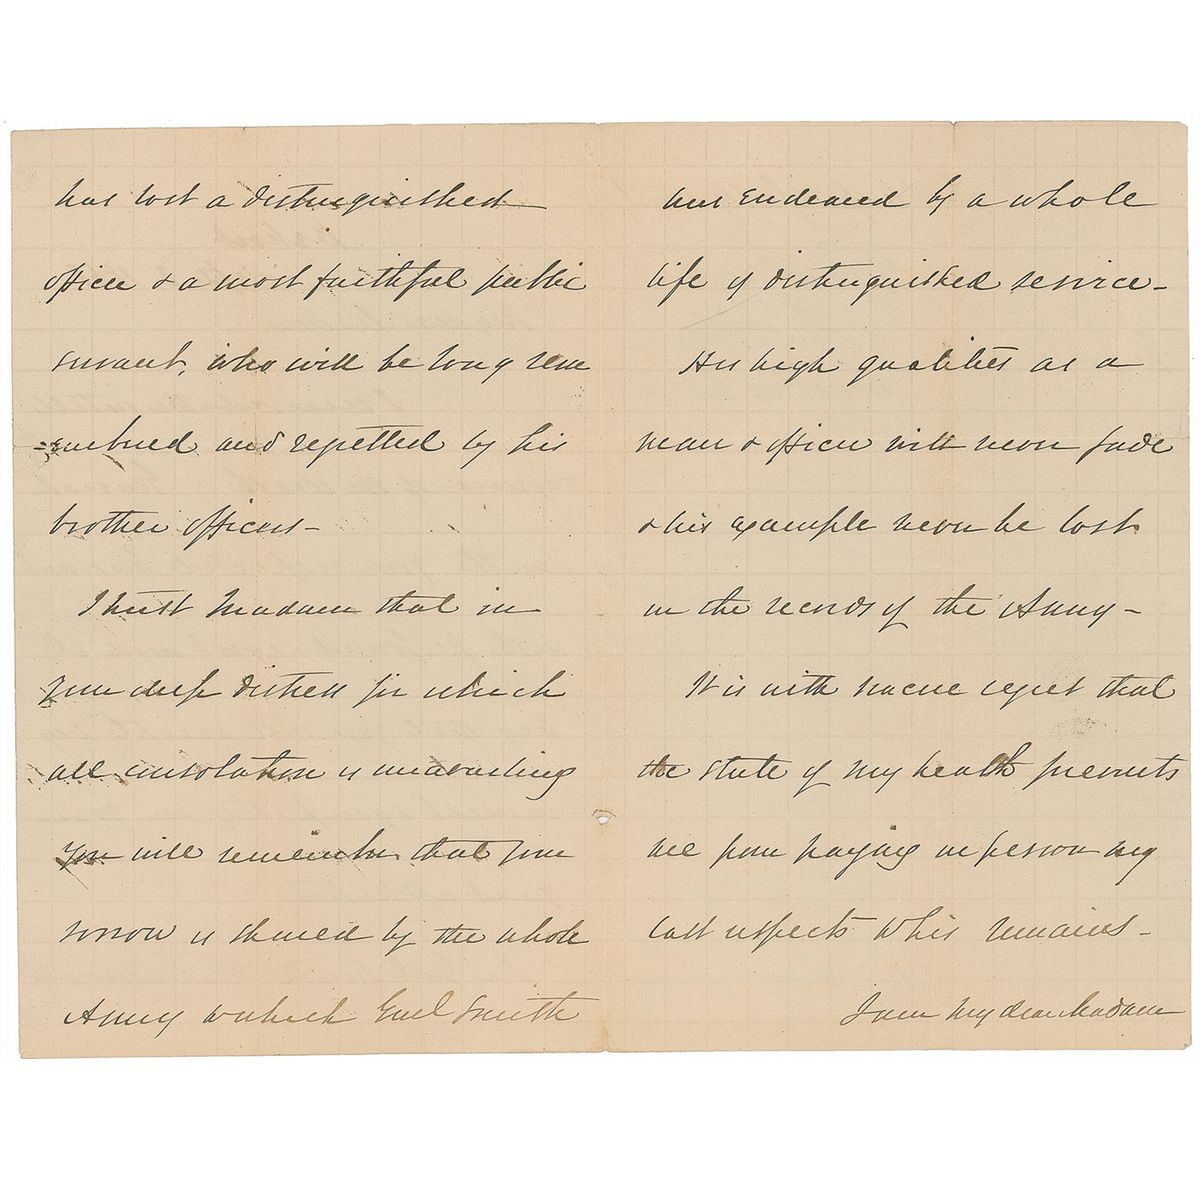 has lost a distinguished
officer & a most faithful public
servant, who will be long rem
=embered and regretted by his
brother officers -
I trust Madam that in
your deep distress for which
all consolation is unavailing
you will remember that your
sorrow is shared by the whole
Army to which Genl Smith
was endeared by a whole
life of distinguished service -
His high qualities as a
man & officer will never fade
& his example never be lost
in the records of the Army -
It is with sincere regret that
the state of my health prevents
me from paying in person my
last respects to his remains -
I am My dear Madam